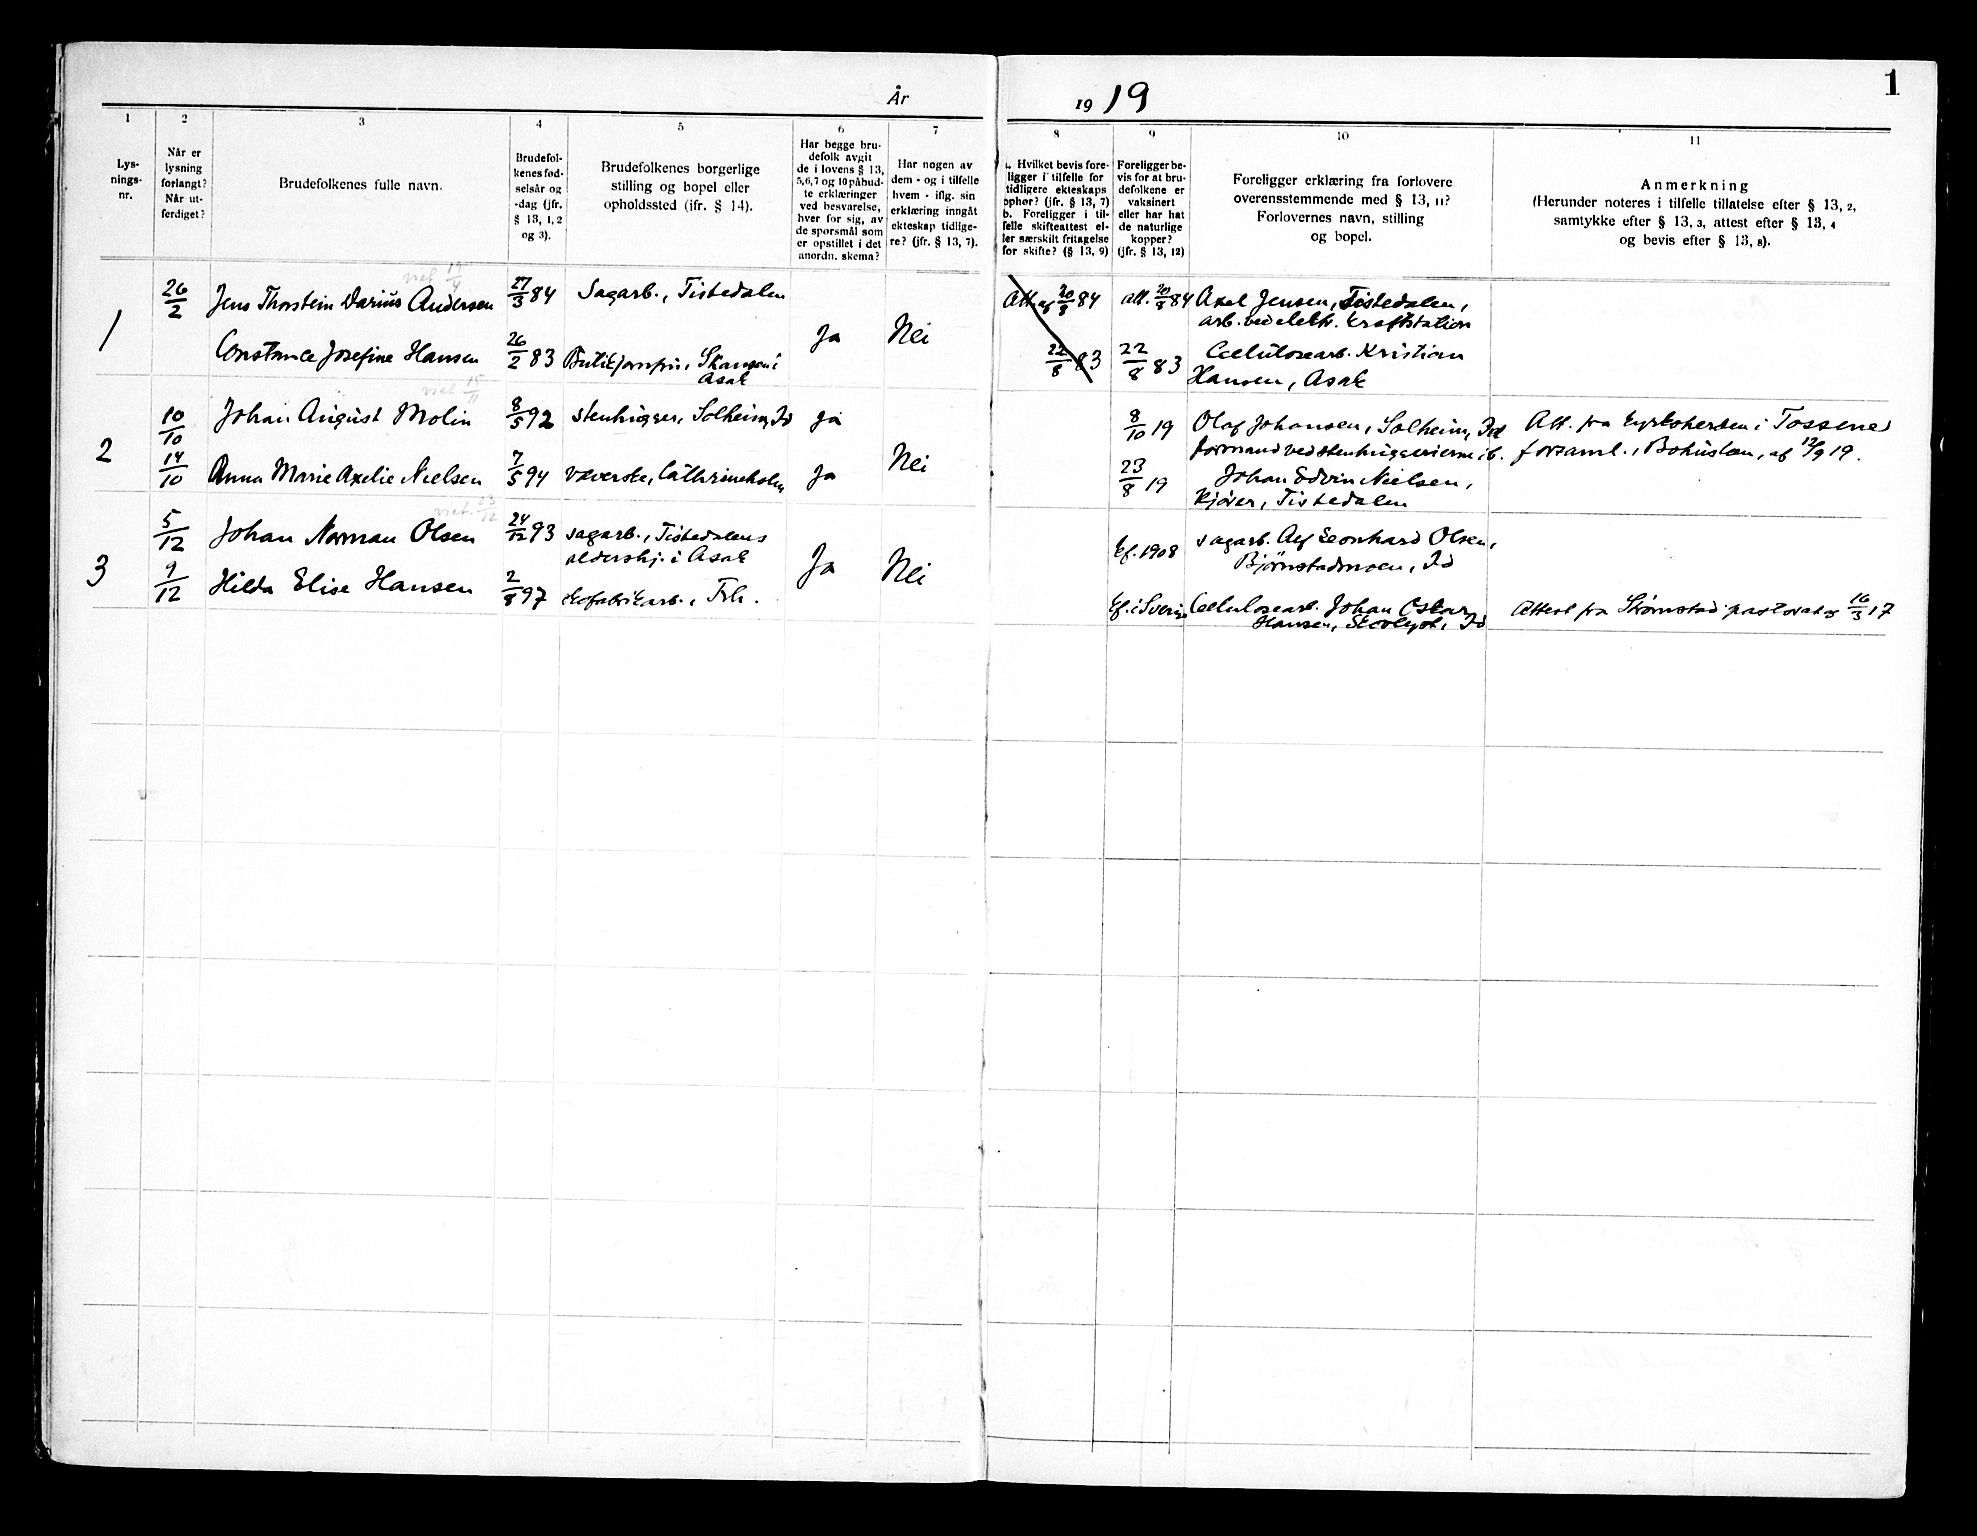 1
År 1919
1
Lys-
nings-
nr.
2
Når er
lysning
forlangt?
Når ut-
ferdiget?
3
Brudefolkenes fulle navn.
4
Brudefol-
kenes fød-
selsår og
-dag (jfr.
§ 13, 1, 2
og 3).
5
Brudefolkenes borgerlige
stilling og bopel eller
opholdssted (jfr. § 14).
6
Har begge bru-
defolk avgit
de i lovens § 13,
5,6,7 og 10 påbud-
te erklæringer
ved besvarelse,
hver for sig, av
de spørsmål som
er opstillet i det
anordn. skema?
7
Har nogen av
dem - og i tilfelle
hvem - iflg. sin
erklæring inngåt
ekteskap tidlige-
re? (jfr. § 13, 7).
8
Hvilket bevis fore-
ligger i tilfelle for
tidligere ekteskaps
ophør? (jfr. § 13, 7)
b. Foreligger i til-
felle skifteattest el-
ler særskilt fritagelse
for skifte? (§ 13, 9)
9
Foreligger be-
vis for at bru-
defolkene er
vaksinert
eller har hat
de naturlige
kopper?
(jfr. § 13, 12)
10
Foreligger erklæring fra forlovere
overensstemmende med § 13, 11?
Forlovernes navn, stilling
og bopel.
11
Anmerkning
(Herunder noteres i tilfelle tillatelse efter § 13, 2,
samtykke efter § 13, 3, attest efter § 13, 4
og bevis efter § 13, 8).
1
26/2
Jens Thorstein Darius Andersen
27/3 84
Sagarb., Tistedalen
Constance Josefine Hansen
26/2 83
Butikjomfru, Skansen i
Asak
Ja
Nei
Att. af 20/8 84
22/8 83
att. 20/8 84
22/8 83
Axel Jensen, Tistedalen,
arb. ved elektr. kraftstation
Cellulosearb. Kristian
Hansen, Asak
2
10/10
14/10
viet 15/11
Johan August Molin
8/5 92
stenhugger, Solheim, Id
Ja
Anna Marie Axelie Nielsen
7/5 94
væverske, Cathrineholm
Ja
Nei
8/10 19
23/8 19
Olaf Johansen, Solheim, Id
formand ved stenhuggerierne ib.
Johan Edvin Nielsen,
kjører, Tistedalen
Att. fra kyrkoherden i Tossene
forsaml., Bohuslän, af 12/9 19.
3
5/12
9/12
viet 23/12
Johan Norman Olsen
24/12 93
sagarb., Tistedalens
aldershj. i Asak
Hilda Elise Hansen
2/8 97
Frh.
Ja
Nei
Ef. 1908
Ef. i Sverige
sagarb. Alf Leonhard Olsen,
Bjørnstadmoen, Id
Cellulosearb. Johan Oskar
Hansen, Id
Attest fra Strømstad pastorat af 16/3 17